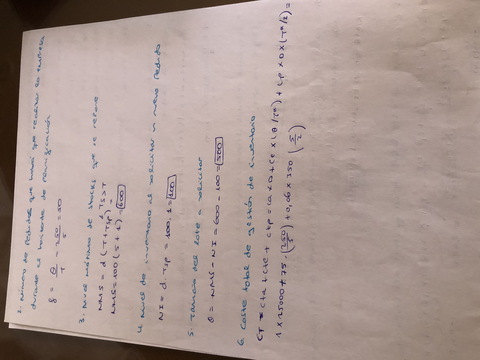 2. Número de pedidos que habrá que realizar
durante el horizonte de planificación
f = θ/T = 250/5 = 50
3. Nivel máximo de stocks que se repone
NMS = d (T + Tsp) =
NMS = 100 (5 + 1) = 600
4. Nivel de inventario al solicitar un nuevo pedido
NI = d · Tsp = 100 · 1 = 100
5. Tamaño del lote a solicitar
Q = NMS - NI = 600 - 100 = 500
6. Coste total de gestión de inventario
CT = Cta + Cte + Ctp = Ca × D + Ce × (θ/T*) + Cp × D × (T*/2) =
1 × 25000 + 75 · (250/5) + 0,06 × 250 (5/2)